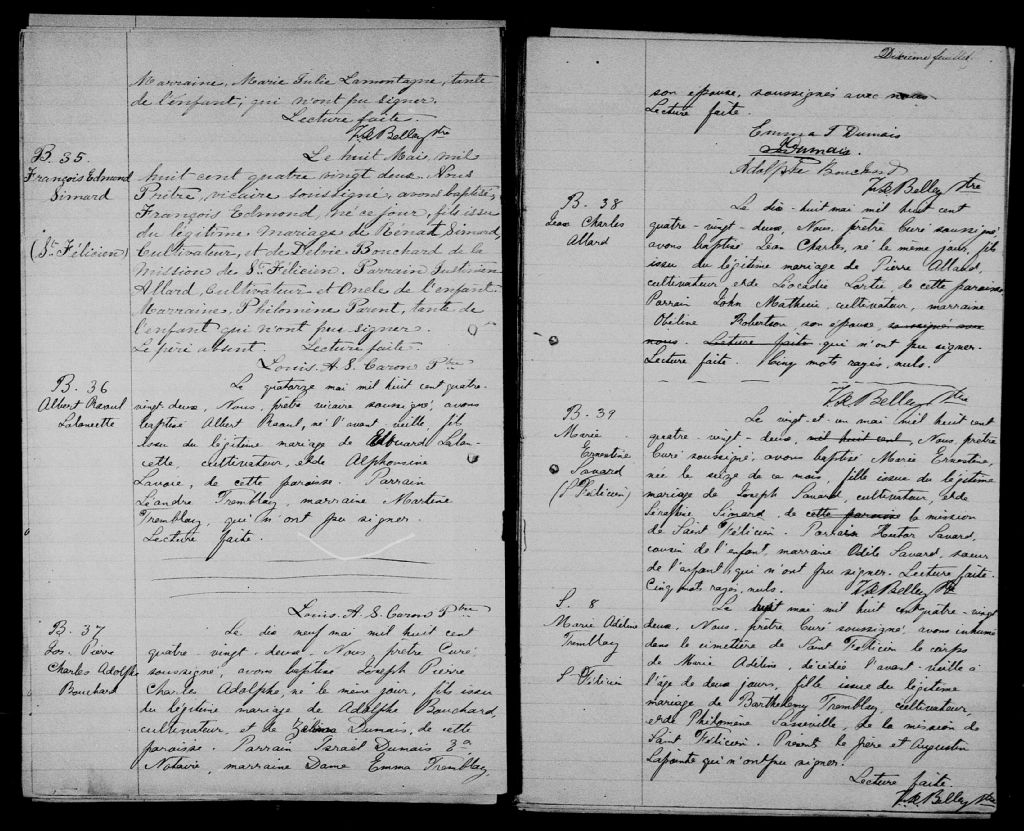 Marraine, Marie Julie Lamontagne, tante
de l'enfant, qui n'ont pu signer.
Lecture faite.
Belley Ptre
B. 35.
François Edmond
Simard
(St Félicien)
Le huit Mai, mil
huit cent quatre vingt deux. Nous
Prêtre, vicaire soussigné, avons baptisé,
François Edmond, né ce jour, fils issu
du légitime mariage de Simard,
Cultivateur, et de Delvie Bouchard de la
mission de St. Félicien. Parrain Justinien
Allard Cultivateur et Oncle de l'enfant.
Marraine, Philomène Parent, tante de
l'enfant qui n'ont pu signer.
Le père absent. Lecture faite.
Louis A. S. Caron Ptre
B. 36
Albert Raoul
Laloncette
Le quatorze mai mil huit cent quatre-
vingt-deux, Nous, prêtre vicaire soussigné, avons
baptisé Albert Raoul, né l'avant veille, fils
issu du légitime mariage de Edouard Lalon-
cette, cultivateur, et de Alphonsine
Lavoie, de cette paroisse. Parrain
Léandre Tremblay, marraine
Tremblay, qui n'ont pu signer.
Lecture faite.
Louis A. S. Caron Ptre
B. 37
Jos. Pierre
Charles Adolphe
Bouchard
Le dix neuf mai mil huit cent
quatre-vingt-deux, Nous prêtre Curé
soussigné, avons baptisé Joseph Pierre
Charles Adolphe, né le même jour, fils issu
du légitime mariage de Adolphe Bouchard,
cultivateur, et de Dumais, de cette
paroisse. Parrain Israël Dumais
Notaire, marraine Dame Emma Tremblay
Dixième feuillet
son épouse, soussignés avec nous
Lecture faite.
Emma T Dumais
Dumais.
Adolphe Bouchard
Belley Ptre
B. 38
Jean Charles
Allard
Le dix-huit mai mil huit cent
quatre-vingt-deux, Nous, prêtre Curé soussigné
avons baptisé Jean Charles, né le même jour, fils
issu du légitime mariage de Pierre Allard,
cultivateur et de Léocadie Lortie, de cette paroisse
Parrain John Mathieu, cultivateur, marraine
Robertson, son épouse, soussignés avec
nous. Lecture faite qui n'ont pu signer.
Lecture faite. Cinq mots rayés, nuls.
Belley Ptre
B. 39
Marie
Ernestine
Savard
(St Félicien)
Le vingt-et-un mai mil huit cent
quatre-vingt-deux, mil huit cent, Nous, prêtre
Curé soussigné, avons baptisé Marie Ernestine,
née le seize de ce mois, fille issue du légitime
mariage de Joseph Savard, cultivateur, et de
Séraphie Simard, de cette paroisse la mission
de Saint Félicien. Parrain Savard,
cousin de l'enfant, marraine Odile Savard, sœur
de l'enfant, qui n'ont pu signer. Lecture faite.
Cinq mots rayés, nuls. Belley Ptre
S. 8
Marie Adeline
Tremblay
St Félicien
Le huit mai mil huit cent quatre-vingt
deux, Nous, prêtre Curé soussigné, avons inhumé
dans le cimetière de Saint Félicien le corps
de Marie Adeline, décédée l'avant-veille à
l'âge de deux jours, fille issue du légitime
mariage de Barthelemy Tremblay, cultivateur,
et de Philomène Sasseville, de la mission de
Saint Félicien. Présents le père et Augustin
Lapointe qui n'ont pu signer.
Lecture faite.
Belley Ptre